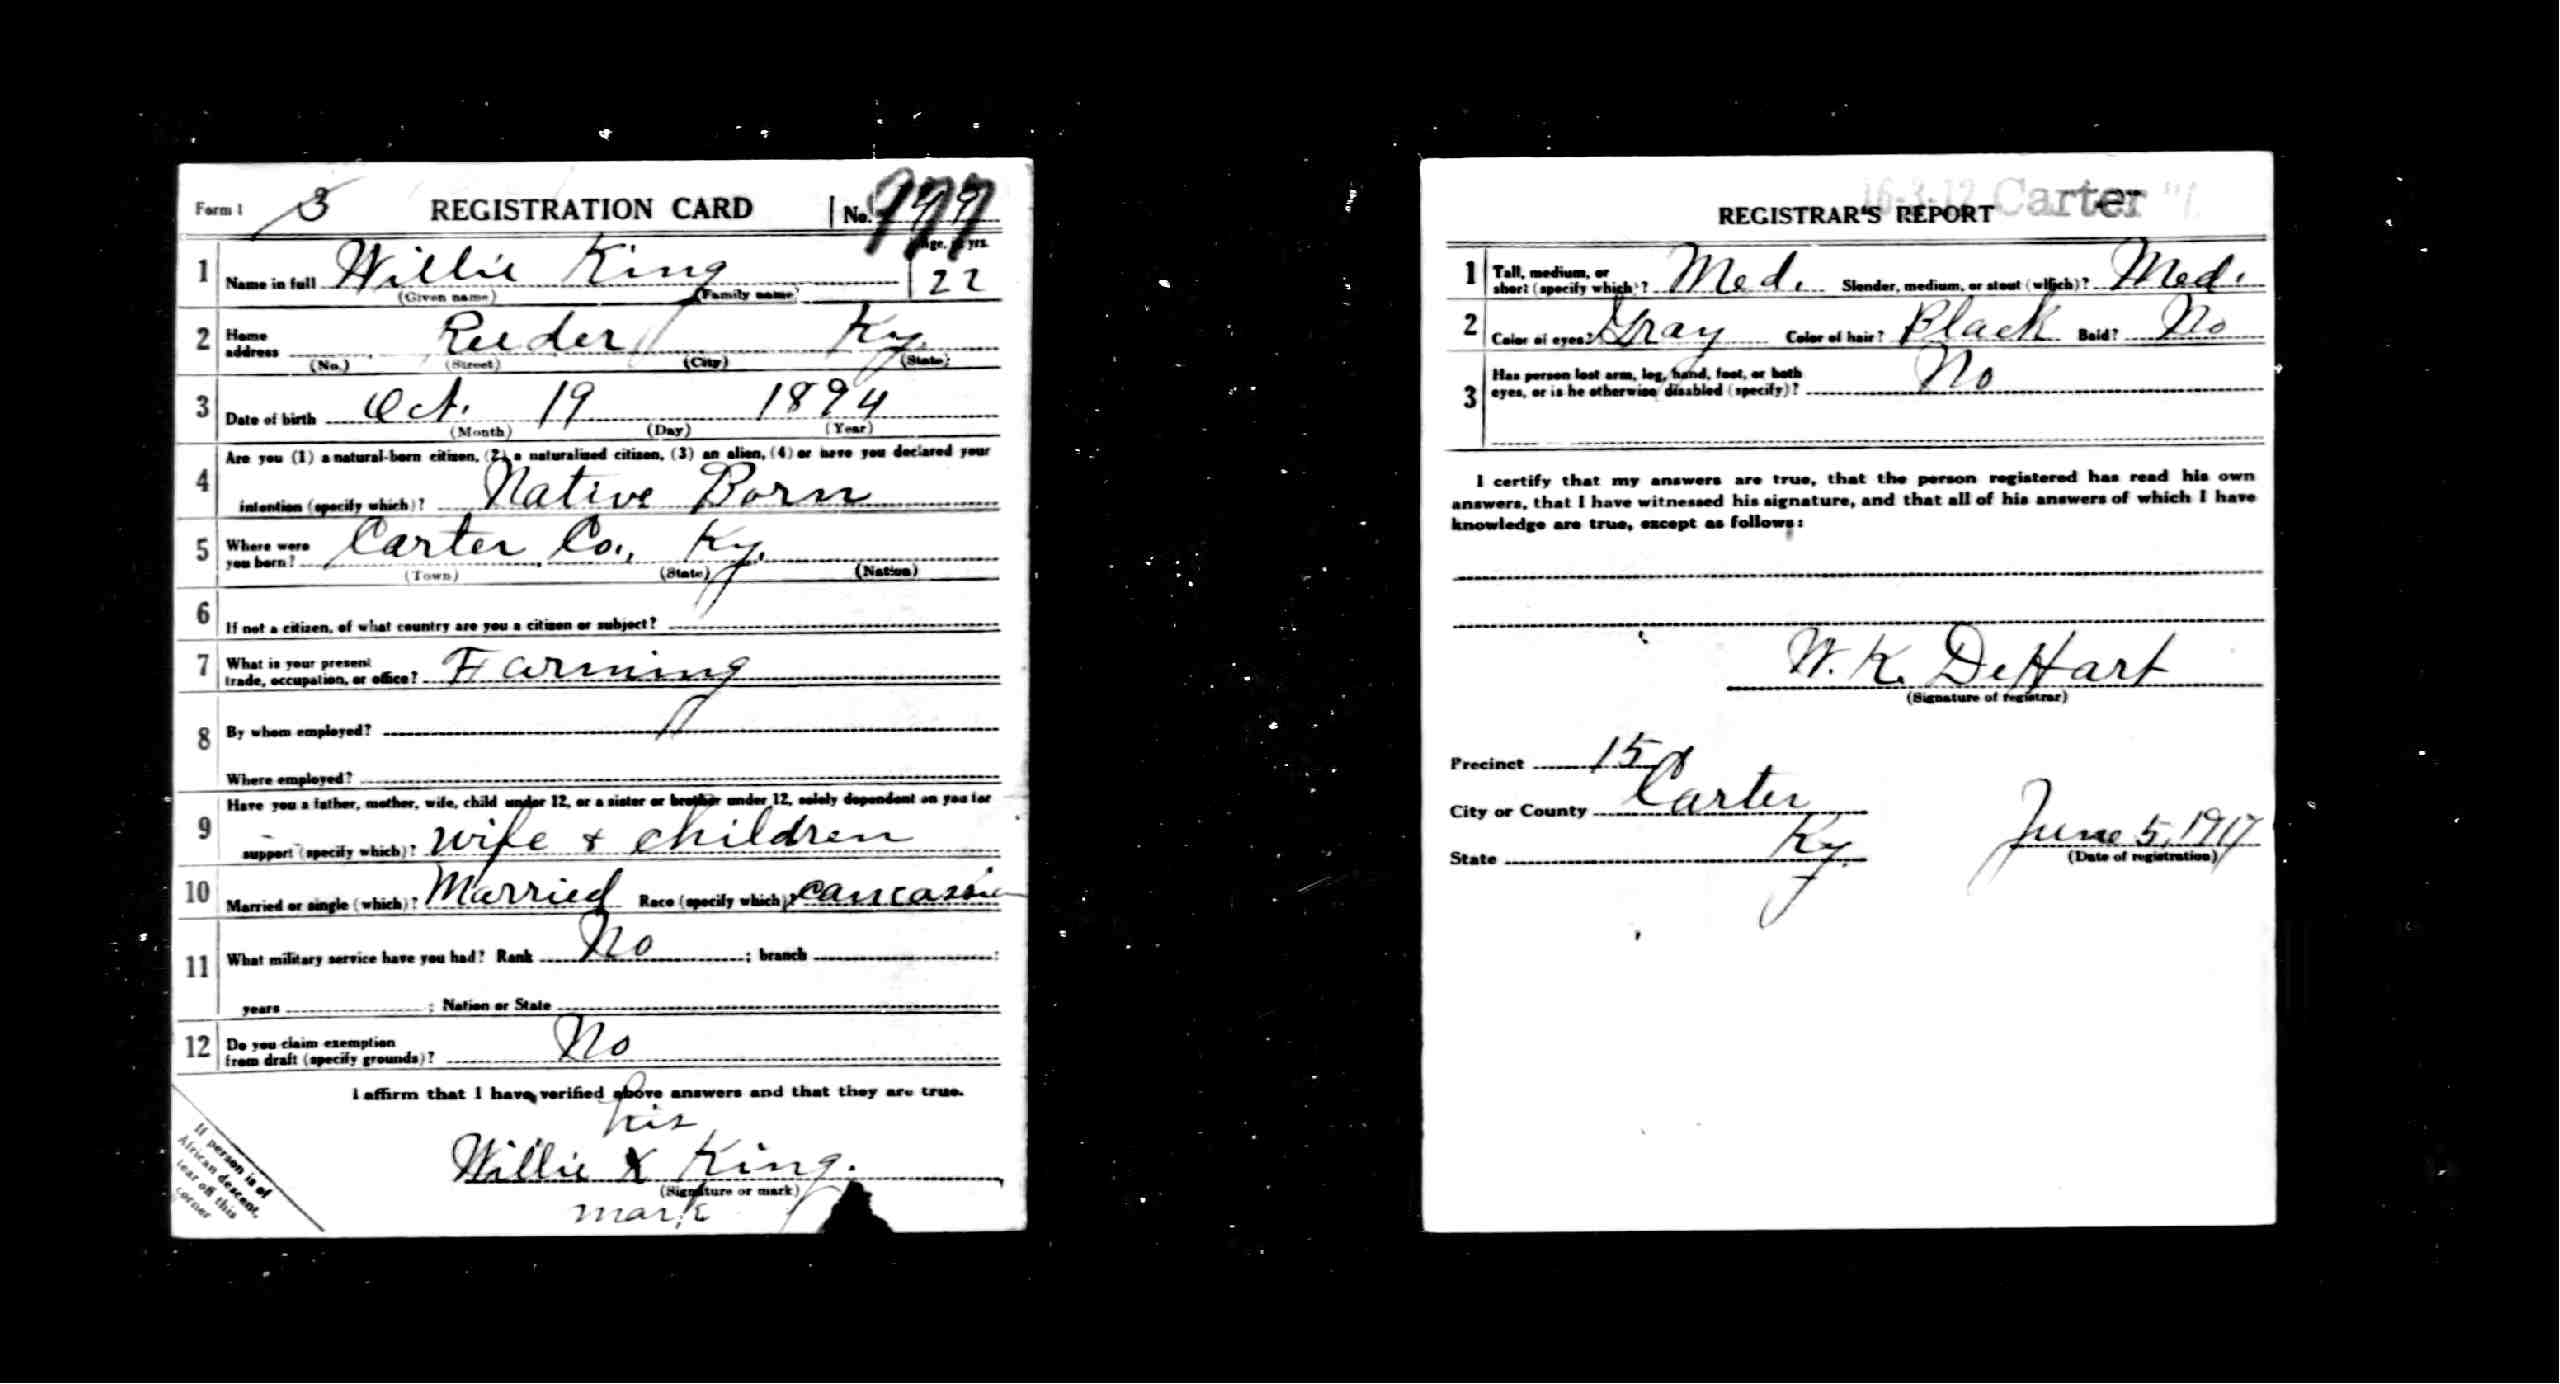 Form 1 3 REGISTRATION CARD No. 
Age, in yrs.
1 Name in full Willie King 22
(Given name) (Family name)
2 Home address Reeder Ky.
(No.) (Street) (City) (State)
3 Date of birth Oct. 19 1894
(Month) (Day) (Year)
4 Are you (1) a natural-born citizen, (2) a naturalized citizen, (3) an alien, (4) or have you declared your
intention (specify which)? Native Born
5 Where were you born? Carter Co., Ky.
(Town) (State) (Nation)
6 If not a citizen, of what country are you a citizen or subject?
7 What is your present
trade, occupation, or office? Farming
8 By whom employed?
Where employed?
9 Have you a father, mother, wife, child under 12, or a sister or brother under 12, solely dependent on you for
support (specify which)? wife + children
10 Married or single (which)? Married Race (specify which)? Cancasian
11 What military service have you had? Rank No ; branch ;
years ; Nation or State
12 Do you claim exemption
from draft (specify grounds)? No
I affirm that I have verified above answers and that they are true.
his
Willie X King.
(Signature or mark)
mark
If person is of
African descent,
tear off this
corner
16-3-12 Carter
REGISTRAR'S REPORT
1 Tall, medium, or
short (specify which)? Med. Slender, medium, or stout (which)? Med.
2 Color of eyes? Gray Color of hair? Black Bald? No
3 Has person lost arm, leg, hand, foot, or both
eyes, or is he otherwise disabled (specify)? No
I certify that my answers are true, that the person registered has read his own
answers, that I have witnessed his signature, and that all of his answers of which I have
knowledge are true, except as follows:
W. K. DeHart
(Signature of registrar)
Precinct 15
City or County Carter
State Ky. June 5, 1917
(Date of registration)